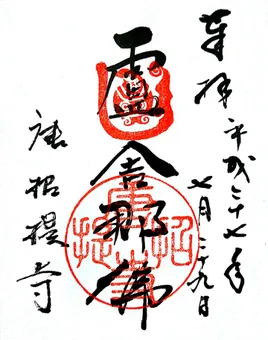 奉拝 平成二十七年
七月二十九日
盧舎那佛
唐招提寺